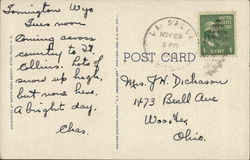 Torrington Wyo
Tues noon
Coming across
country to Ft.
Collins. Lots of
snow up high,
but none here.
A bright day.
Chas.
LA SALLE
NOV 29
5 PM
POST CARD
1
Mrs. J. W. Dickason
1473 Beall Ave
Wooster
Ohio.